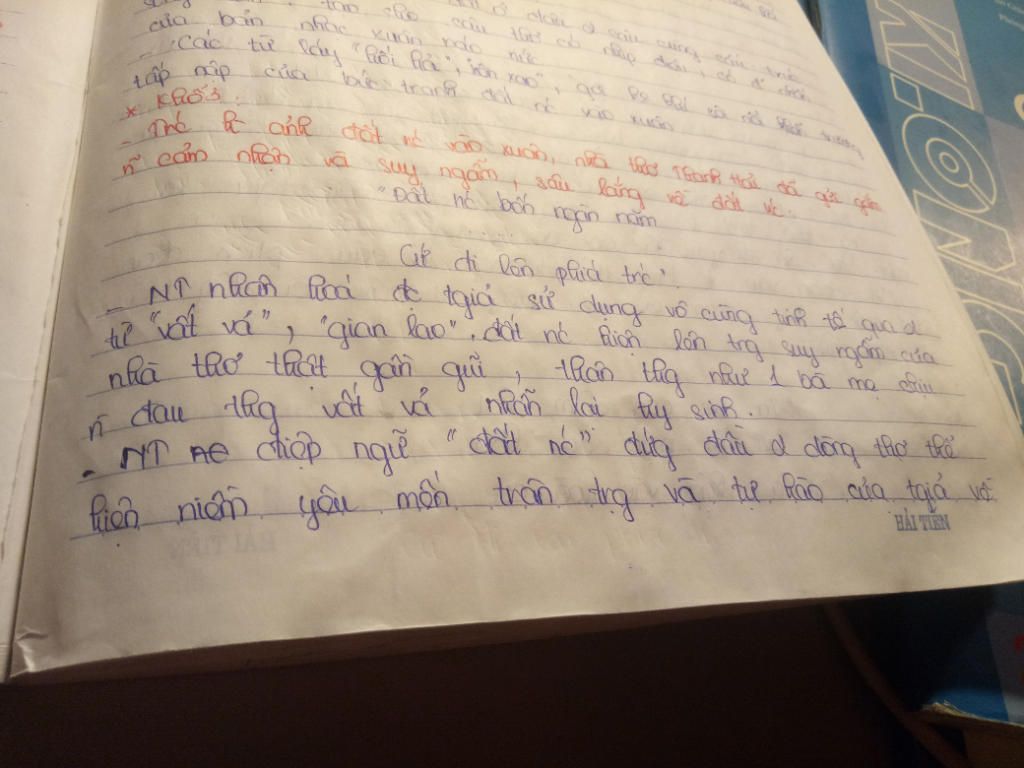 của bản nhạc xuân náo nức
- Các từ láy "hối hả", "xôn xao",
tấp nập của bức tranh đất nc vào xuân
* Khổ 3:
- Trc h ảnh đất nc vào xuân, nhà thơ Thanh Hải đã gửi gắm
n̄ cảm nhận và suy ngẫm, sâu lắng về đất nc.
"Đất nc bốn ngàn năm
.......
Cứ đi lên phía trc"
- NT nhân hoá đc tgiả sử dụng vô cùng tinh tế qua 2
từ "vất vả", "gian lao". đất nc hiện lên trg suy ngẫm của
nhà thơ thật gần gũi, thân thg như 1 bà mẹ chịu
n̄ đau thg vất vả nhẫn lại hy sinh.
- NT điệp ngữ "đất nc" đứng đầu 2 dòng thơ thể
hiện niềm yêu mến trân trg và tự hào của tgiả về
HẢI TIẾN